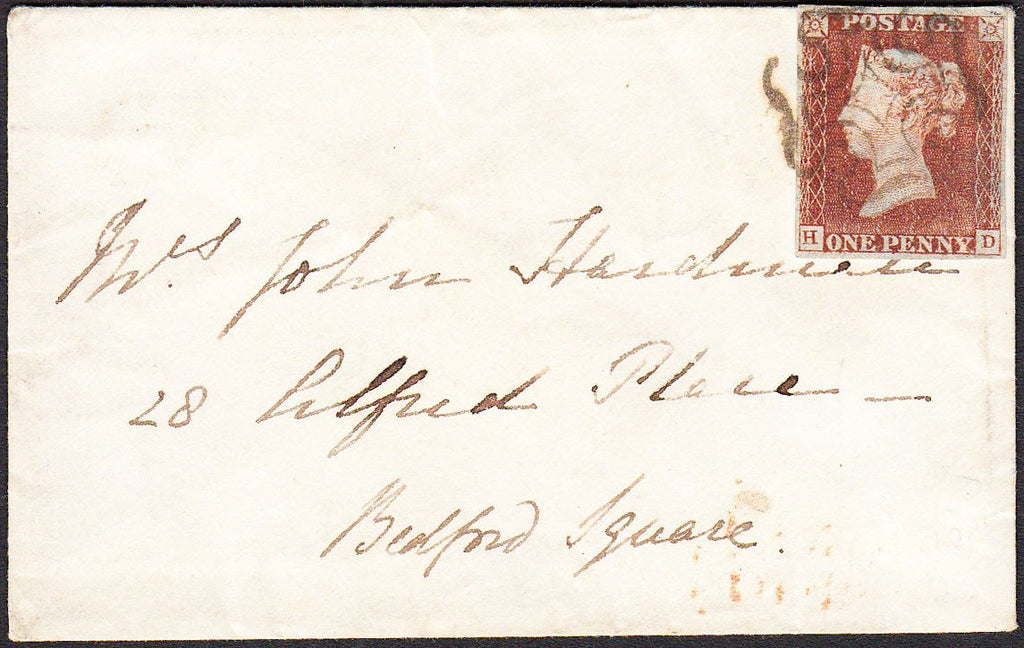 POSTAGE
H ONE PENNY D
Mrs. John
28 Alfred Place —
Bedford Square.